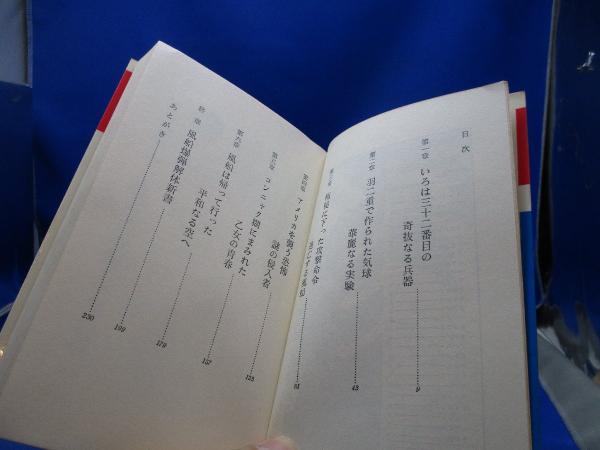 目次
第一章 いろは三十二番目の
奇抜なる兵器 9
第二章 羽二重で作られた気球
華麗なる実験 43
第三章 極秘に下った攻撃命令
91
第四章 アメリカを襲う恐怖
謎の侵入者 125
第五章 コンニャク糊にまみれた
乙女の青春 157
第六章 風船は帰って行った
平和なる空へ 179
終章 風船爆弾解体新書 199
あとがき 230